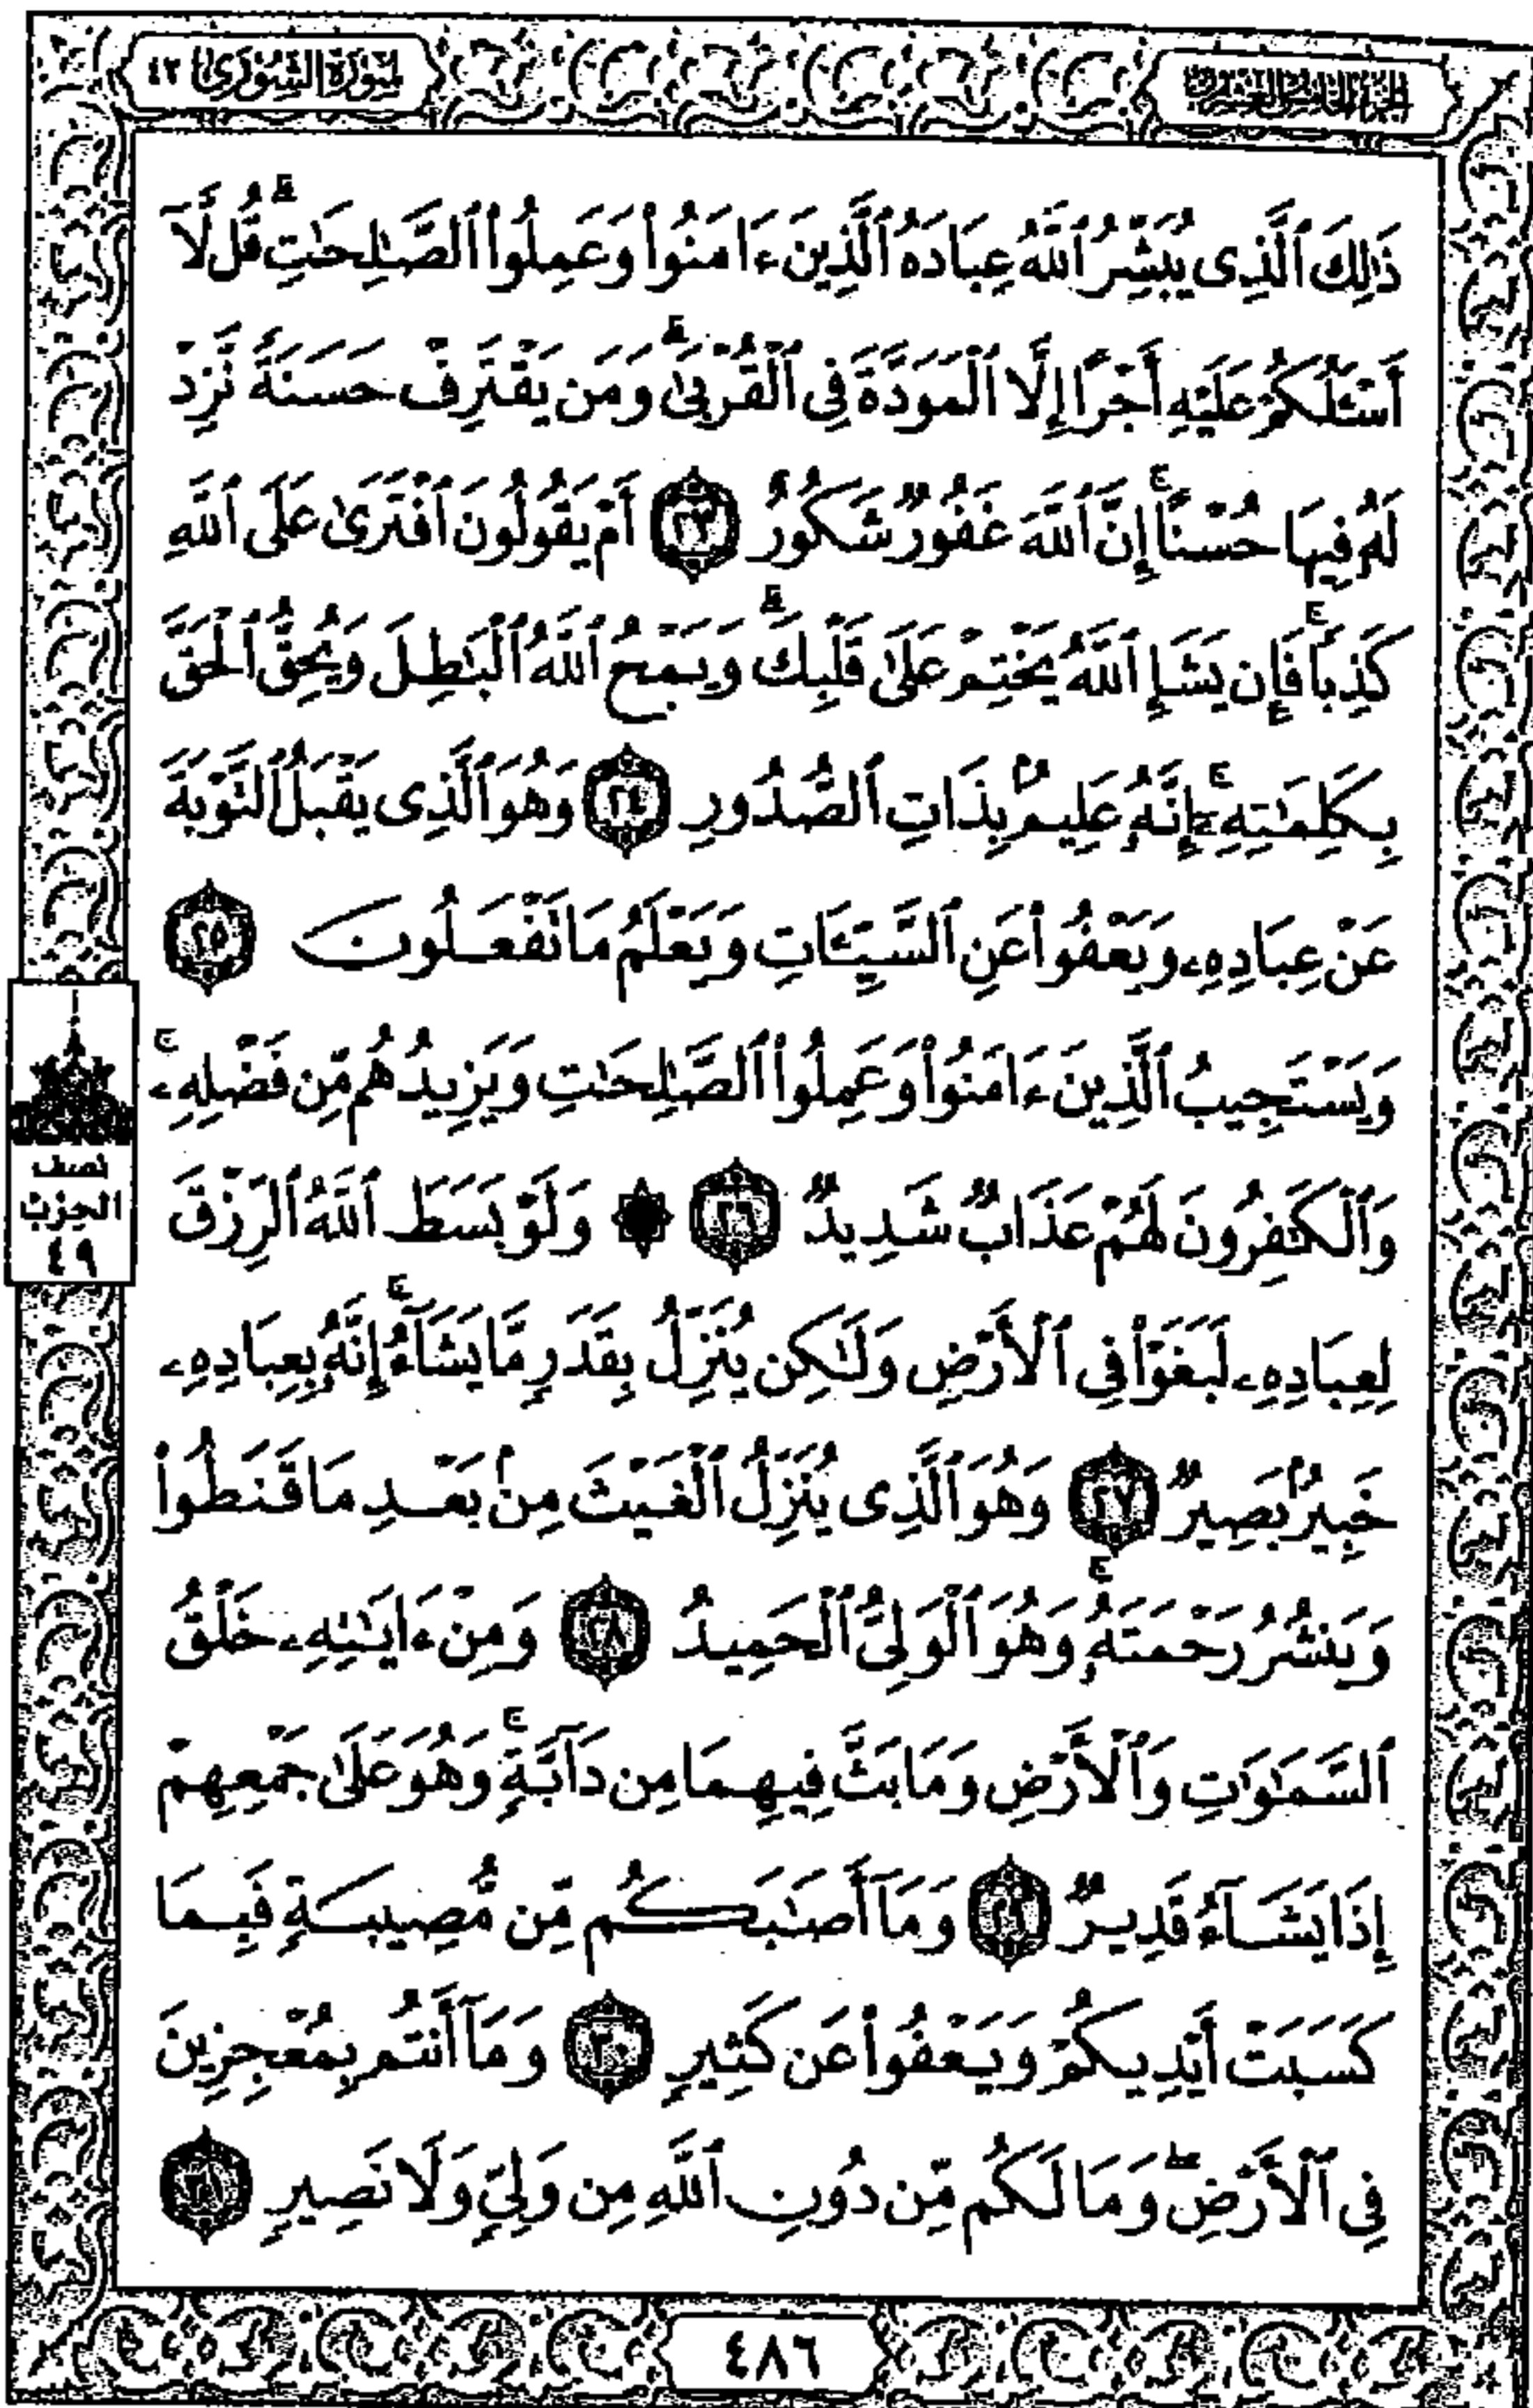 الجزء الخامس والعشرون
سورة الشورى ٤٢
ذَٰلِكَ ٱلَّذِى يُبَشِّرُ ٱللَّهُ عِبَادَهُ ٱلَّذِينَ ءَامَنُوا۟ وَعَمِلُوا۟ ٱلصَّٰلِحَٰتِ ۗ قُل لَّآ
أَسْـَٔلُكُمْ عَلَيْهِ أَجْرًا إِلَّا ٱلْمَوَدَّةَ فِى ٱلْقُرْبَىٰ ۗ وَمَن يَقْتَرِفْ حَسَنَةً نَّزِدْ
لَهُۥ فِيهَا حُسْنًا ۚ إِنَّ ٱللَّهَ غَفُورٌ شَكُورٌ ٢٣ أَمْ يَقُولُونَ ٱفْتَرَىٰ عَلَى ٱللَّهِ
كَذِبًا ۖ فَإِن يَشَإِ ٱللَّهُ يَخْتِمْ عَلَىٰ قَلْبِكَ ۗ وَيَمْحُ ٱللَّهُ ٱلْبَٰطِلَ وَيُحِقُّ ٱلْحَقَّ
بِكَلِمَٰتِهِۦٓ ۚ إِنَّهُۥ عَلِيمٌۢ بِذَاتِ ٱلصُّدُورِ ٢٤ وَهُوَ ٱلَّذِى يَقْبَلُ ٱلتَّوْبَةَ
عَنْ عِبَادِهِۦ وَيَعْفُوا۟ عَنِ ٱلسَّيِّـَٔاتِ وَيَعْلَمُ مَا تَفْعَلُونَ ٢٥
وَيَسْتَجِيبُ ٱلَّذِينَ ءَامَنُوا۟ وَعَمِلُوا۟ ٱلصَّٰلِحَٰتِ وَيَزِيدُهُم مِّن فَضْلِهِۦ ۚ
وَٱلْكَٰفِرُونَ لَهُمْ عَذَابٌ شَدِيدٌ ٢٦ ۞ وَلَوْ بَسَطَ ٱللَّهُ ٱلرِّزْقَ
لِعِبَادِهِۦ لَبَغَوْا۟ فِى ٱلْأَرْضِ وَلَٰكِن يُنَزِّلُ بِقَدَرٍ مَّا يَشَآءُ ۚ إِنَّهُۥ بِعِبَادِهِۦ
خَبِيرٌۢ بَصِيرٌ ٢٧ وَهُوَ ٱلَّذِى يُنَزِّلُ ٱلْغَيْثَ مِنۢ بَعْدِ مَا قَنَطُوا۟
وَيَنشُرُ رَحْمَتَهُۥ ۚ وَهُوَ ٱلْوَلِىُّ ٱلْحَمِيدُ ٢٨ وَمِنْ ءَايَٰتِهِۦ خَلْقُ
ٱلسَّمَٰوَٰتِ وَٱلْأَرْضِ وَمَا بَثَّ فِيهِمَا مِن دَآبَّةٍ ۚ وَهُوَ عَلَىٰ جَمْعِهِمْ
إِذَا يَشَآءُ قَدِيرٌ ٢٩ وَمَآ أَصَٰبَكُم مِّن مُّصِيبَةٍ فَبِمَا
كَسَبَتْ أَيْدِيكُمْ وَيَعْفُوا۟ عَن كَثِيرٍ ٣٠ وَمَآ أَنتُم بِمُعْجِزِينَ
فِى ٱلْأَرْضِ ۖ وَمَا لَكُم مِّن دُونِ ٱللَّهِ مِن وَلِىٍّ وَلَا نَصِيرٍ ٣١
نصف
الحزب
٤٩
٤٨٦